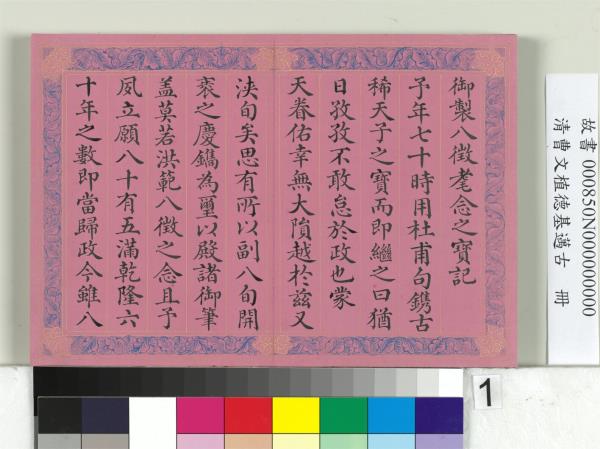 御製八徵耄念之寶記
予年七十時用杜甫句鎸古
稀天子之寶而即繼之曰猶
日孜孜不敢怠於政也蒙
天眷佑幸無大隕越於茲又
浹旬矣思有所以副八旬開
袠之慶鐫為璽以殿諸御筆
盖莫若洪範八徵之念且予
夙立願八十有五滿乾隆六
十年之數即當歸政今雖八
故書 000850N000000000
清 曹文植德基邁古 冊
1